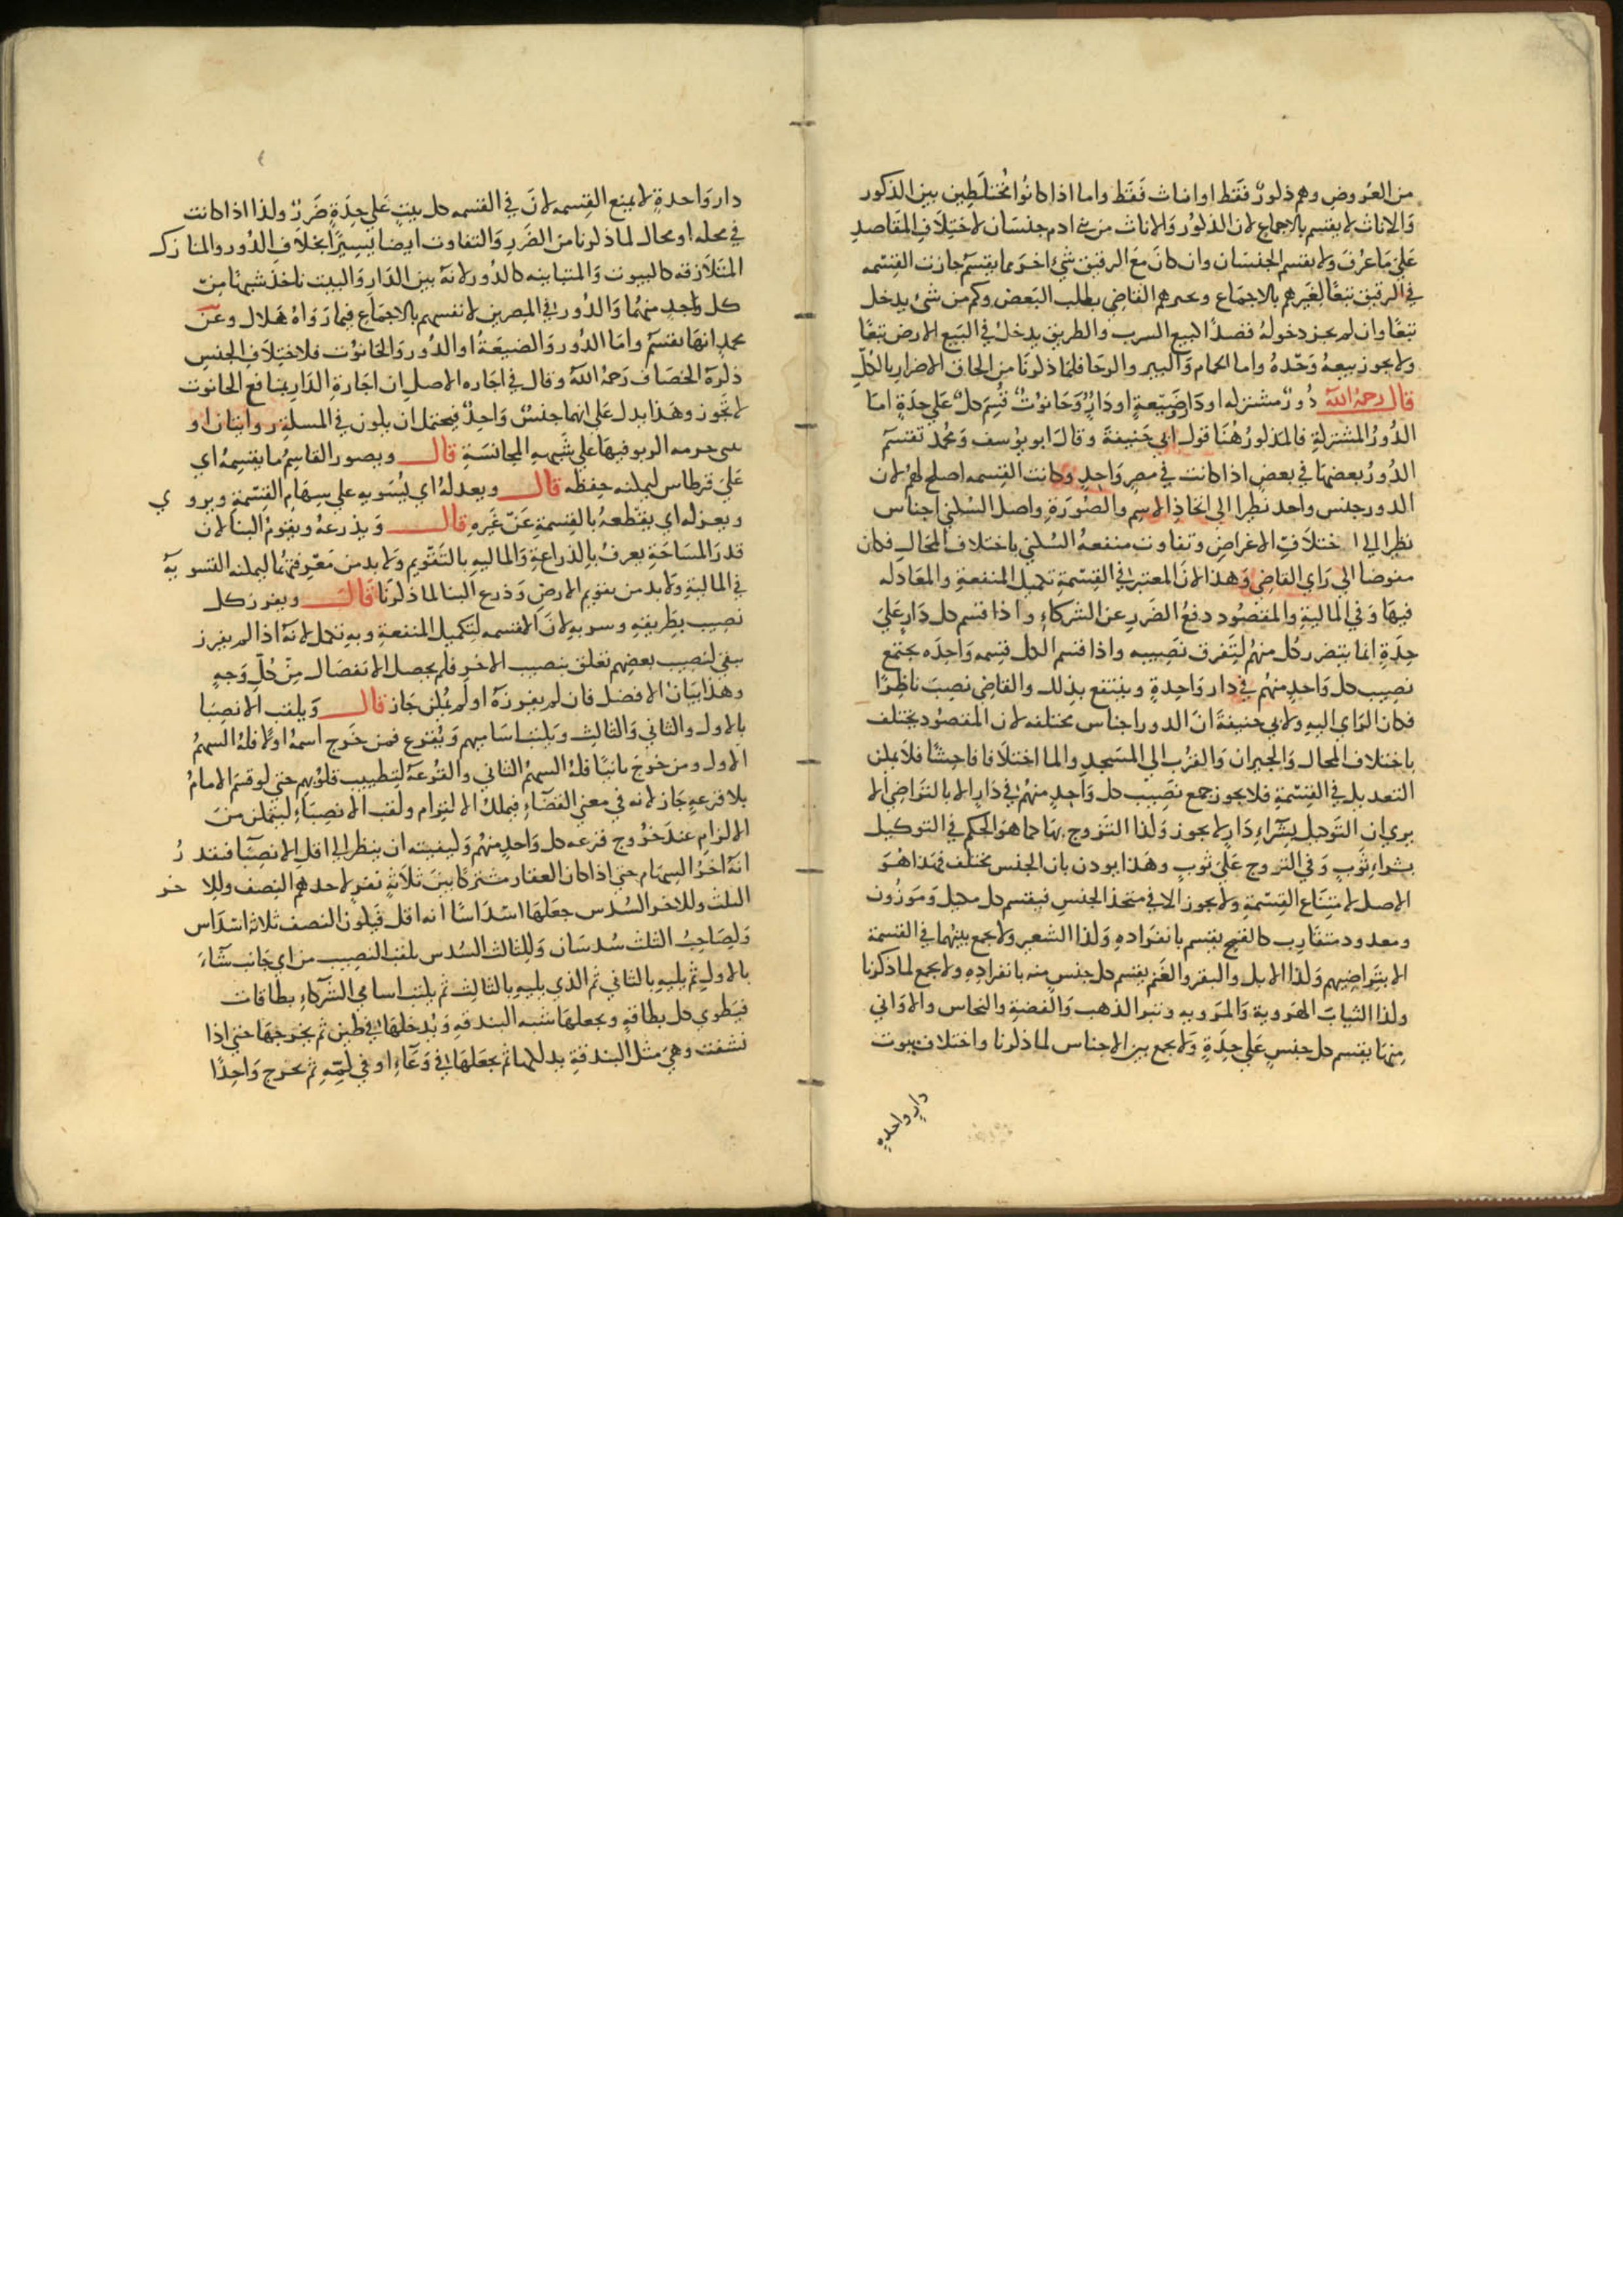 من العروض وهم ذكور فقط او اناث فقط واما اذا كانوا مختلطين بين الذكور
والاناث لا يقسم بالاجماع لان الذكور والاناث من بني ادم جنسان لاختلاف المقاصد
على ما عرف ولا يقسم الجنسان وان كان مع الرقيق شيء اخر مما يقسم جازت القسمه
في الرقيق تبعا لغيرهم بالاجماع ويجبرهم القاضي بطلب البعض وكم من شيء يدخل
تبعا وان لم يجز دخوله قصدا كبيع الشرب والطريق يدخل في البيع الارض تبعا
ولا يجوز بيعه وحده واما الحمام والبير والرحا فلما ذكرنا من الحاق الاضرار بالكل
قال رحمه الله دور مشتركه او دار وضيعة او دار وحانوت قسم كل على حدة اما
الدور المشتركة فالمذكور هنا قول ابي حنيفة وقال ابو يوسف ومحمد تقسم
الدور بعضها في بعض اذا كانت في مصر واحد وكانت القسمه اصلح لهم لان
الدور جنس واحد نظرا الى اتحاذ الاسم والصورة واصل السكني اجناس
نظرا الى اختلاف الاغراض وتفاوت منفعة السكني باختلاف المحال فكان
مفوضا الى راي القاضي وهذا لان المعتبر في القسمة تكميل المنفعة والمعادله
فيها وفي المالية والمقصود دفع الضرر عن الشركاء واذا قسم كل دار على
حدة انما يتضرر كل منهم لتفرق نصيبه واذا قسم الكل قسمه واحده يجتمع
نصيب كل واحد منهم في دار واحدة وينتفع بذلك والقاضي نصب ناظرا
فكان الراي اليه ولابي حنيفة ان الدور اجناس مختلفه لان المقصود يختلف
باختلاف المحال والجيران والقرب الى المسجد والما اختلافا فاحشا فلا يمكن
التعديل في القسمة فلا يجوز جمع نصيب كل واحد منهم في دار الا بالتراضي الا
يري ان التوكيل بشراء دار لا يجوز وكذا التزوج بها كما هو الحكم في التوكيل
بشراء ثوب وفي التزوج على ثوب وهذا يوذن بان الجنس يختلف فهذا هو
الاصل لامتناع القسمة ولا يجوز الا في متحذ الجنس فيقسم كل مكيل وموزون
ومعدود متقارب كالقمح يقسم بانفراده وكذا الشعير ولا يجمع بينهما في القسمة
الا بتراضيهم وكذا الابل والبقر والغنم يقسم كل جنس منه بانفراده ولا يجمع لما ذكرنا
وكذا الثياب الهروية والمرويه وتبر الذهب والفضة والنحاس والاواني
منها يقسم كل جنس على حدة ولا يجمع بين الاجناس لما ذكرنا واختلاف بيوت
دار واحدة
دار واحدة لا يمنع القسمه لان في القسمه كل بيت على حدة ضرر وكذا اذا كانت
في محله او محال لما ذكرنا من الضرر والتفاوت ايضا يسيرا بخلاف الدور والمنازل
المتلازقه كالبيوت والمتباينه كالدور لانه بين الدار والبيت ناخذ شبها من
كل واحد منهما والدور في المصرين لا تقسم بالاجماع فيما رواه هلال وعن
محمد انها تقسم واما الدور والضيعة او الدور والحانوت فلاختلاف الجنس
ذكره الخصاف رحمه الله وقال في اجاره الاصل ان اجارة الدار بمنافع الحانوت
لا تجوز وهذا يدل على انهما جنس واحد فيحتمل ان يكون في المسلة روايتان او
حرمه الربو فيها على شبهه المجانسة قال ويصور القاسم ما يقسمه اي
على قرطاس ليمكنه حفظه قال ويعدله اي يسويه على سهام القسمة ويروي
ويعزله اي يقطعه بالقسمة عن غيره قال ويذرعه ويقوم البنا لان
قدر المساحة يعرف بالذراعة والماليه بالتقويم ولا بد من معرفتهما ليمكنه التسويه
في المالية ولا بد من تقويم الارض وذرع البنا لما ذكرنا قال ويفرز كل
نصيب بطريقه وشربه لان القسمه لتكميل المنفعة وبه تكمل لانه اذا لم يفرز
يبقى لنصيب بعضهم تعلق بنصيب الاخر فلم يحصل الانفصال من كل وجه
وهذا بيان الافضل فان لم يفرزه او لم يمكن جاز قال ويلقب الانصبا
بالاول والثاني والثالث ويكتب اساميهم ويقرع فمن خرج اسمه اولا فله السهم
الاول ومن خرج ثانيا فله السهم الثاني والقرعة لتطييب قلوبهم حتى لو قسم الامام
بلا قرعة جاز لانه في معني القضاء فيملك الالزام ولقب الانصباء ليتمكن من
الالزام عند خروج قرعه كل واحد منهم وكيفيته ان ينظر الى اقل الانصبا فتقدر
انه اخر السهام حتى اذا كان العقار مشتركا بين ثلاثة نفر لاحدهم النصف وللاخر
الثلث وللاخر السدس جعلها اسداسا انه اقل فيكون النصف ثلاثة اسداس
ولصاحب الثلث سدسان وللثالث السدس يلقب النصيب من اي جانب شاء
بالاول ثم يليه بالثاني ثم الذي يليه بالثالث ثم يكتب اسامي الشركاء بطاقات
فيطوي كل بطاقة ويجعلها شبه البندقه ويدخلها في طين ثم يخرجها حتى اذا
نشفت وهي مثل البندقة يدلكها ثم يجعلها في وعاء او في كمه ثم يخرج واحدا